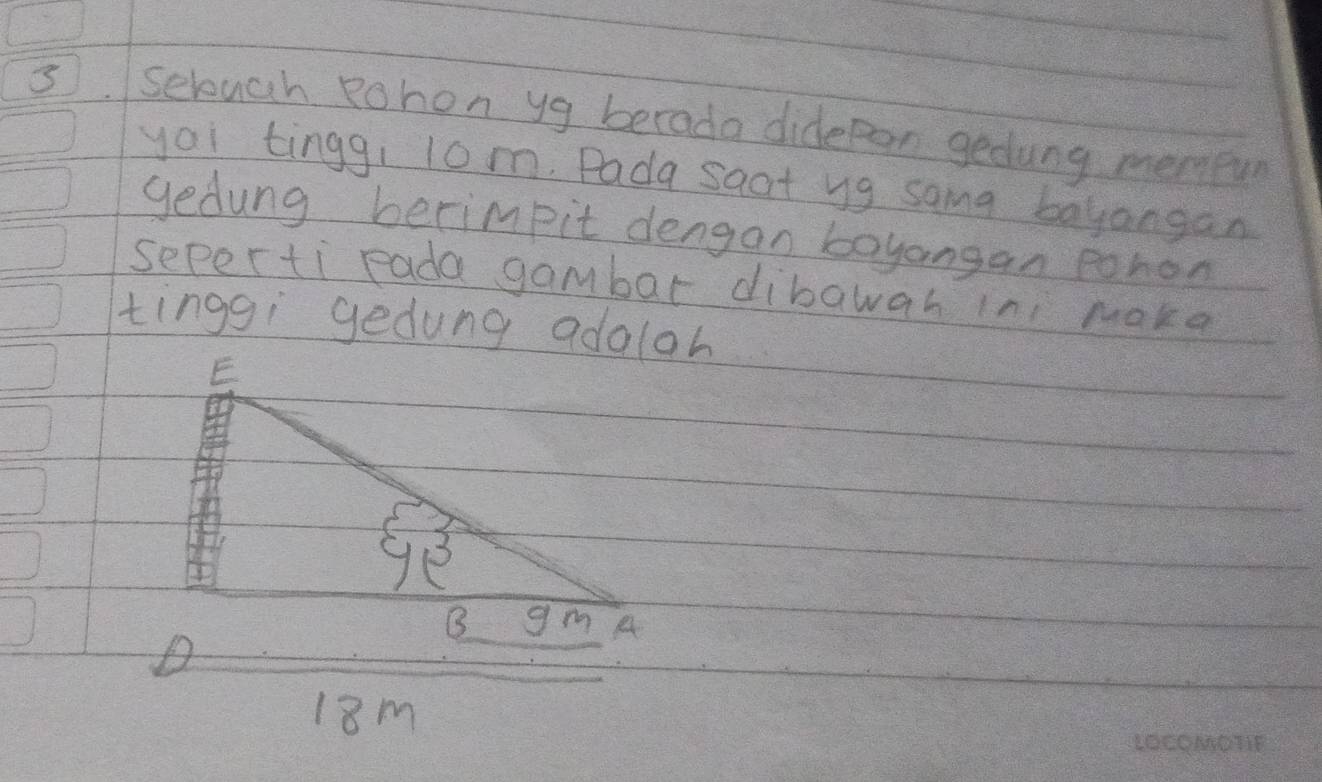 3. Sebuah pohon yg berada didepan gedung mempun
yai tinggi 10 m. Pada saat yg sama bayangan
gedung berimpit dengan bayangan pohon
seperti pada gambar dibawah ini maka
tinggi gedung adalah
E
B 9 m A
D
18 m
LOCOMOTIF